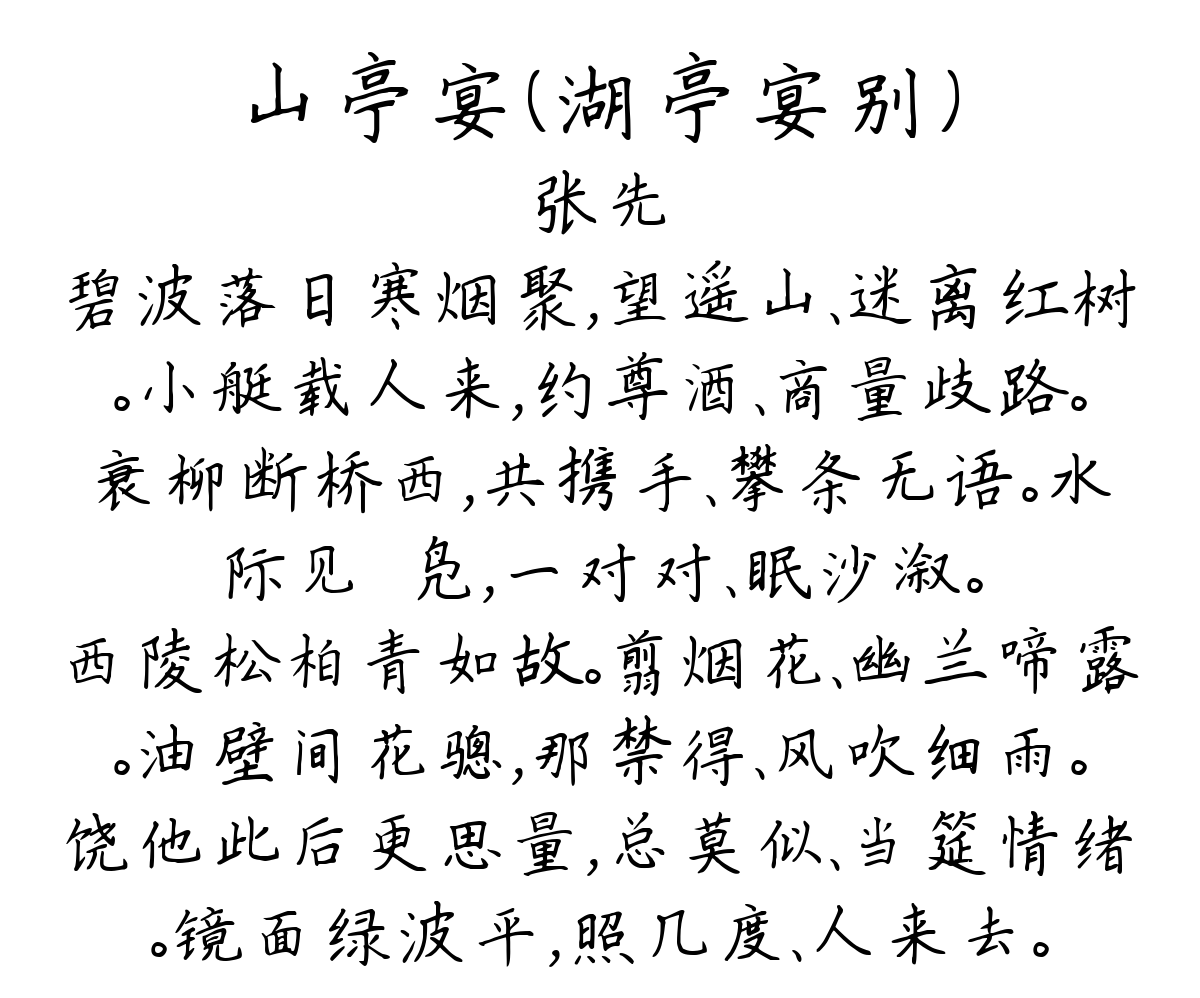 山亭宴(湖亭宴别)
张先
碧波落日寒烟聚,望遥山、迷离红树
。小艇载人来,约尊酒、商量歧路。
衰柳断桥西,共携手、攀条无语。水
际见 凫,一对对、眠沙溆。
西陵松柏青如故。翦烟花、幽兰啼露
。油壁间花骢,那禁得、风吹细雨。
饶他此后更思量,总莫似、当筵情绪
。镜面绿波平,照几度、人来去。